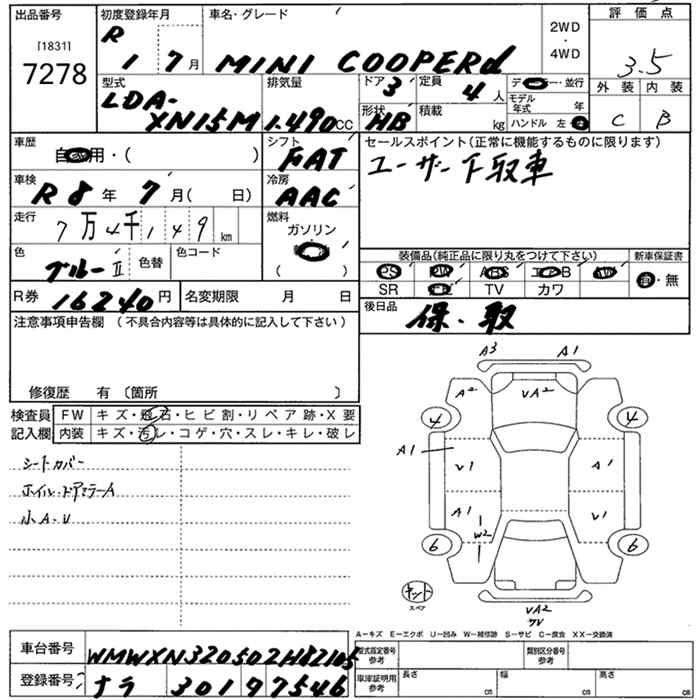 出品番号
〔1831〕
7278
初度登録年月
R 1 7月
車名・グレード
MINI COOPERd
2WD
・
4WD
評価点
3.5
外装 内装
C B
型式
LDA-
XN15M
排気量
1.490cc
ドア 3
定員 4人
形状
HB
積載 kg
ディーラー・並行
モデル年式 年
ハンドル 左・右
車歴
自家用・( )
シフト
FAT
セールスポイント(正常に機能するものに限ります)
ユーザー下取車
車検
R8年 7月( 日)
冷房
AAC
走行
7万4千149km
燃料
ガソリン
軽油
( )
色
ブルーII
色替
色コード
装備品(純正品に限り丸をつけて下さい)
PS PW ABS エアB AW
SR ナビ TV カワ
新車保証書
有・無
R券 16240円
名変期限 月 日
後日品 保・取
注意事項申告欄 (不具合内容等は具体的に記入して下さい)
修復歴 有〔箇所 〕
検査員
記入欄
FW キズ・飛石・ヒビ割・リペア跡・X要
内装 キズ・汚レ・コゲ・穴・スレ・キレ・破レ
シートカバー
ホイル・ドアミラーA
小A・U
A3 A1
A2 VA2
4 4
A1
V1 A1
A1 V1
W2
6 6
キット
スペア
VA2
7V
A-キズ E-エクボ U-凹み W-補修跡 S-サビ C-腐食 XX-交換済
車台番号 WMWXN320502H82105
登録番号 ナラ 301 ヤ 7546
型式指定番号
参考
類別区分番号
参考
車庫証明用
参考
長さ cm 幅 cm 高さ cm